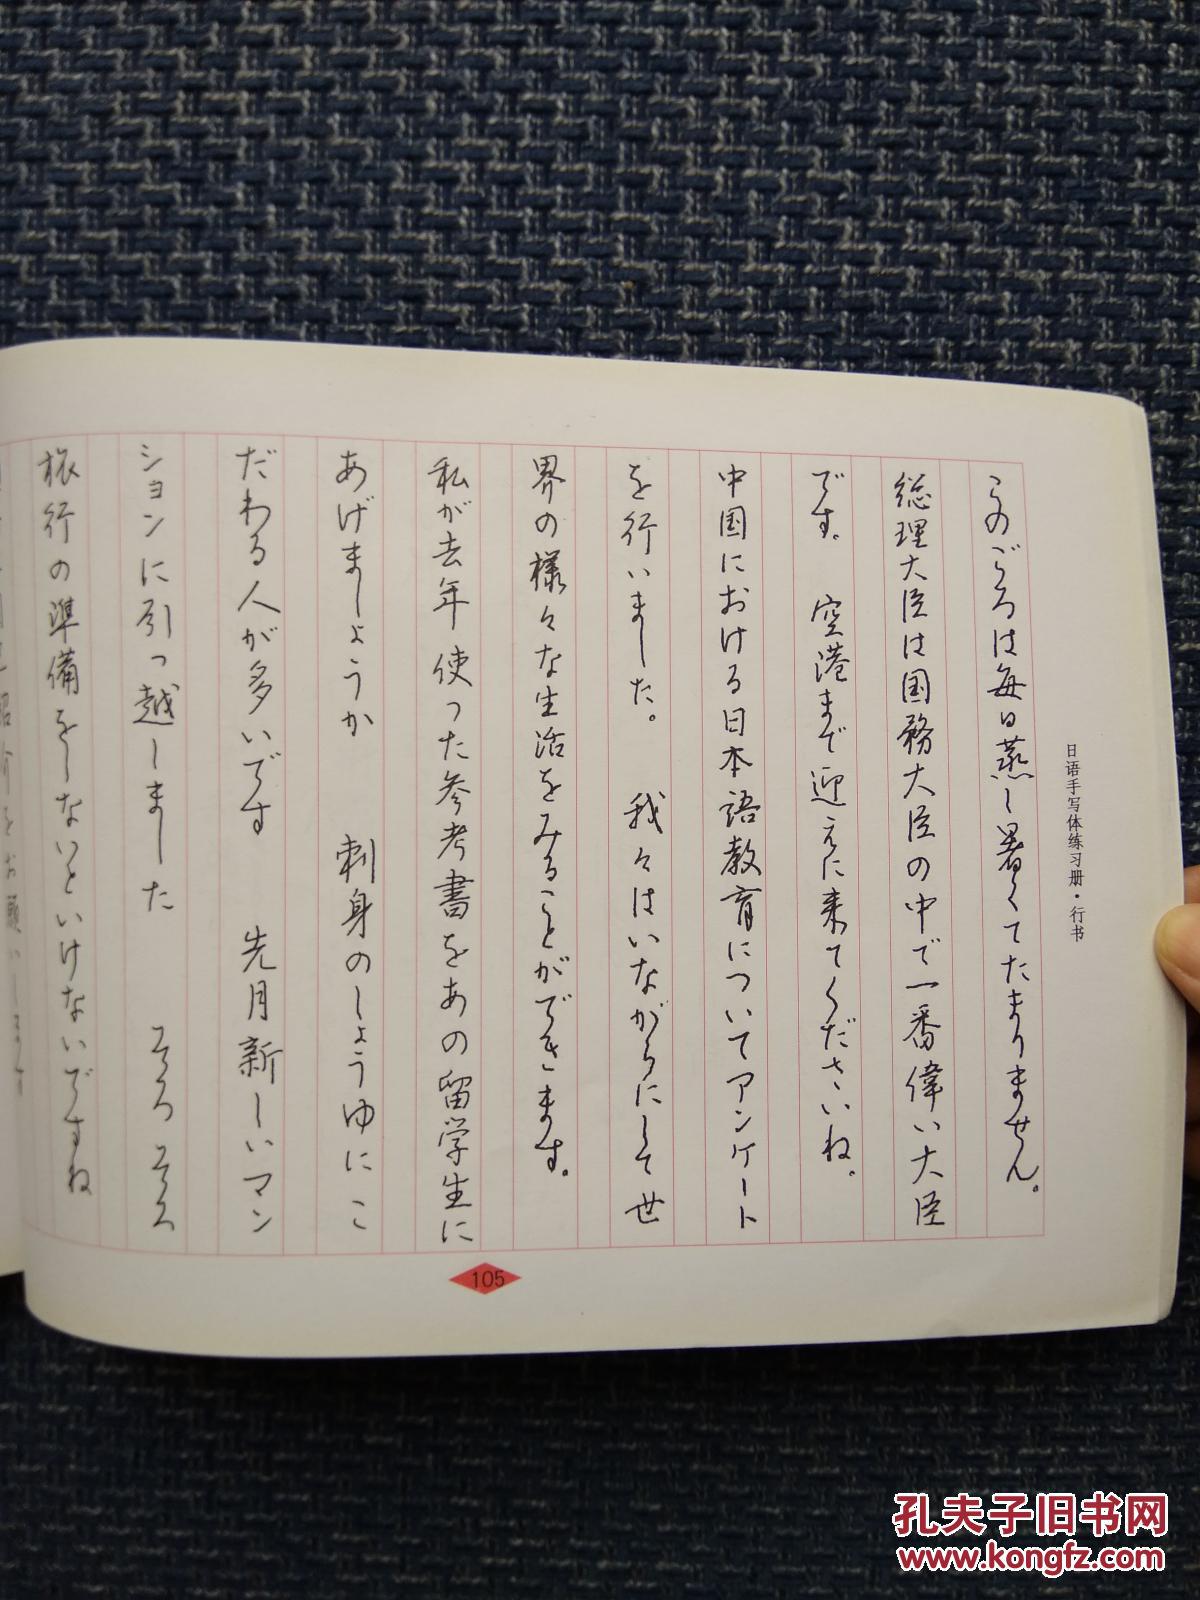 日语手写体练习册・行书
このごろは毎日蒸し暑くてたまりません。
総理大臣は国務大臣の中で一番偉い大臣
です。 空港まで迎えに来てくださいね。
中国における日本語教育についてアンケート
を行いました。 我々はいながらにして世
界の様々な生活をみることができます。
私が去年使った参考書をあの留学生に
あげましょうか 刺身のしょうゆにこ
だわる人が多いです 先月新しいマン
ションに引っ越しました そろそろ
旅行の準備をしないといけないですね
紹介をお願いします
105
孔夫子旧书网
www.kongfz.com